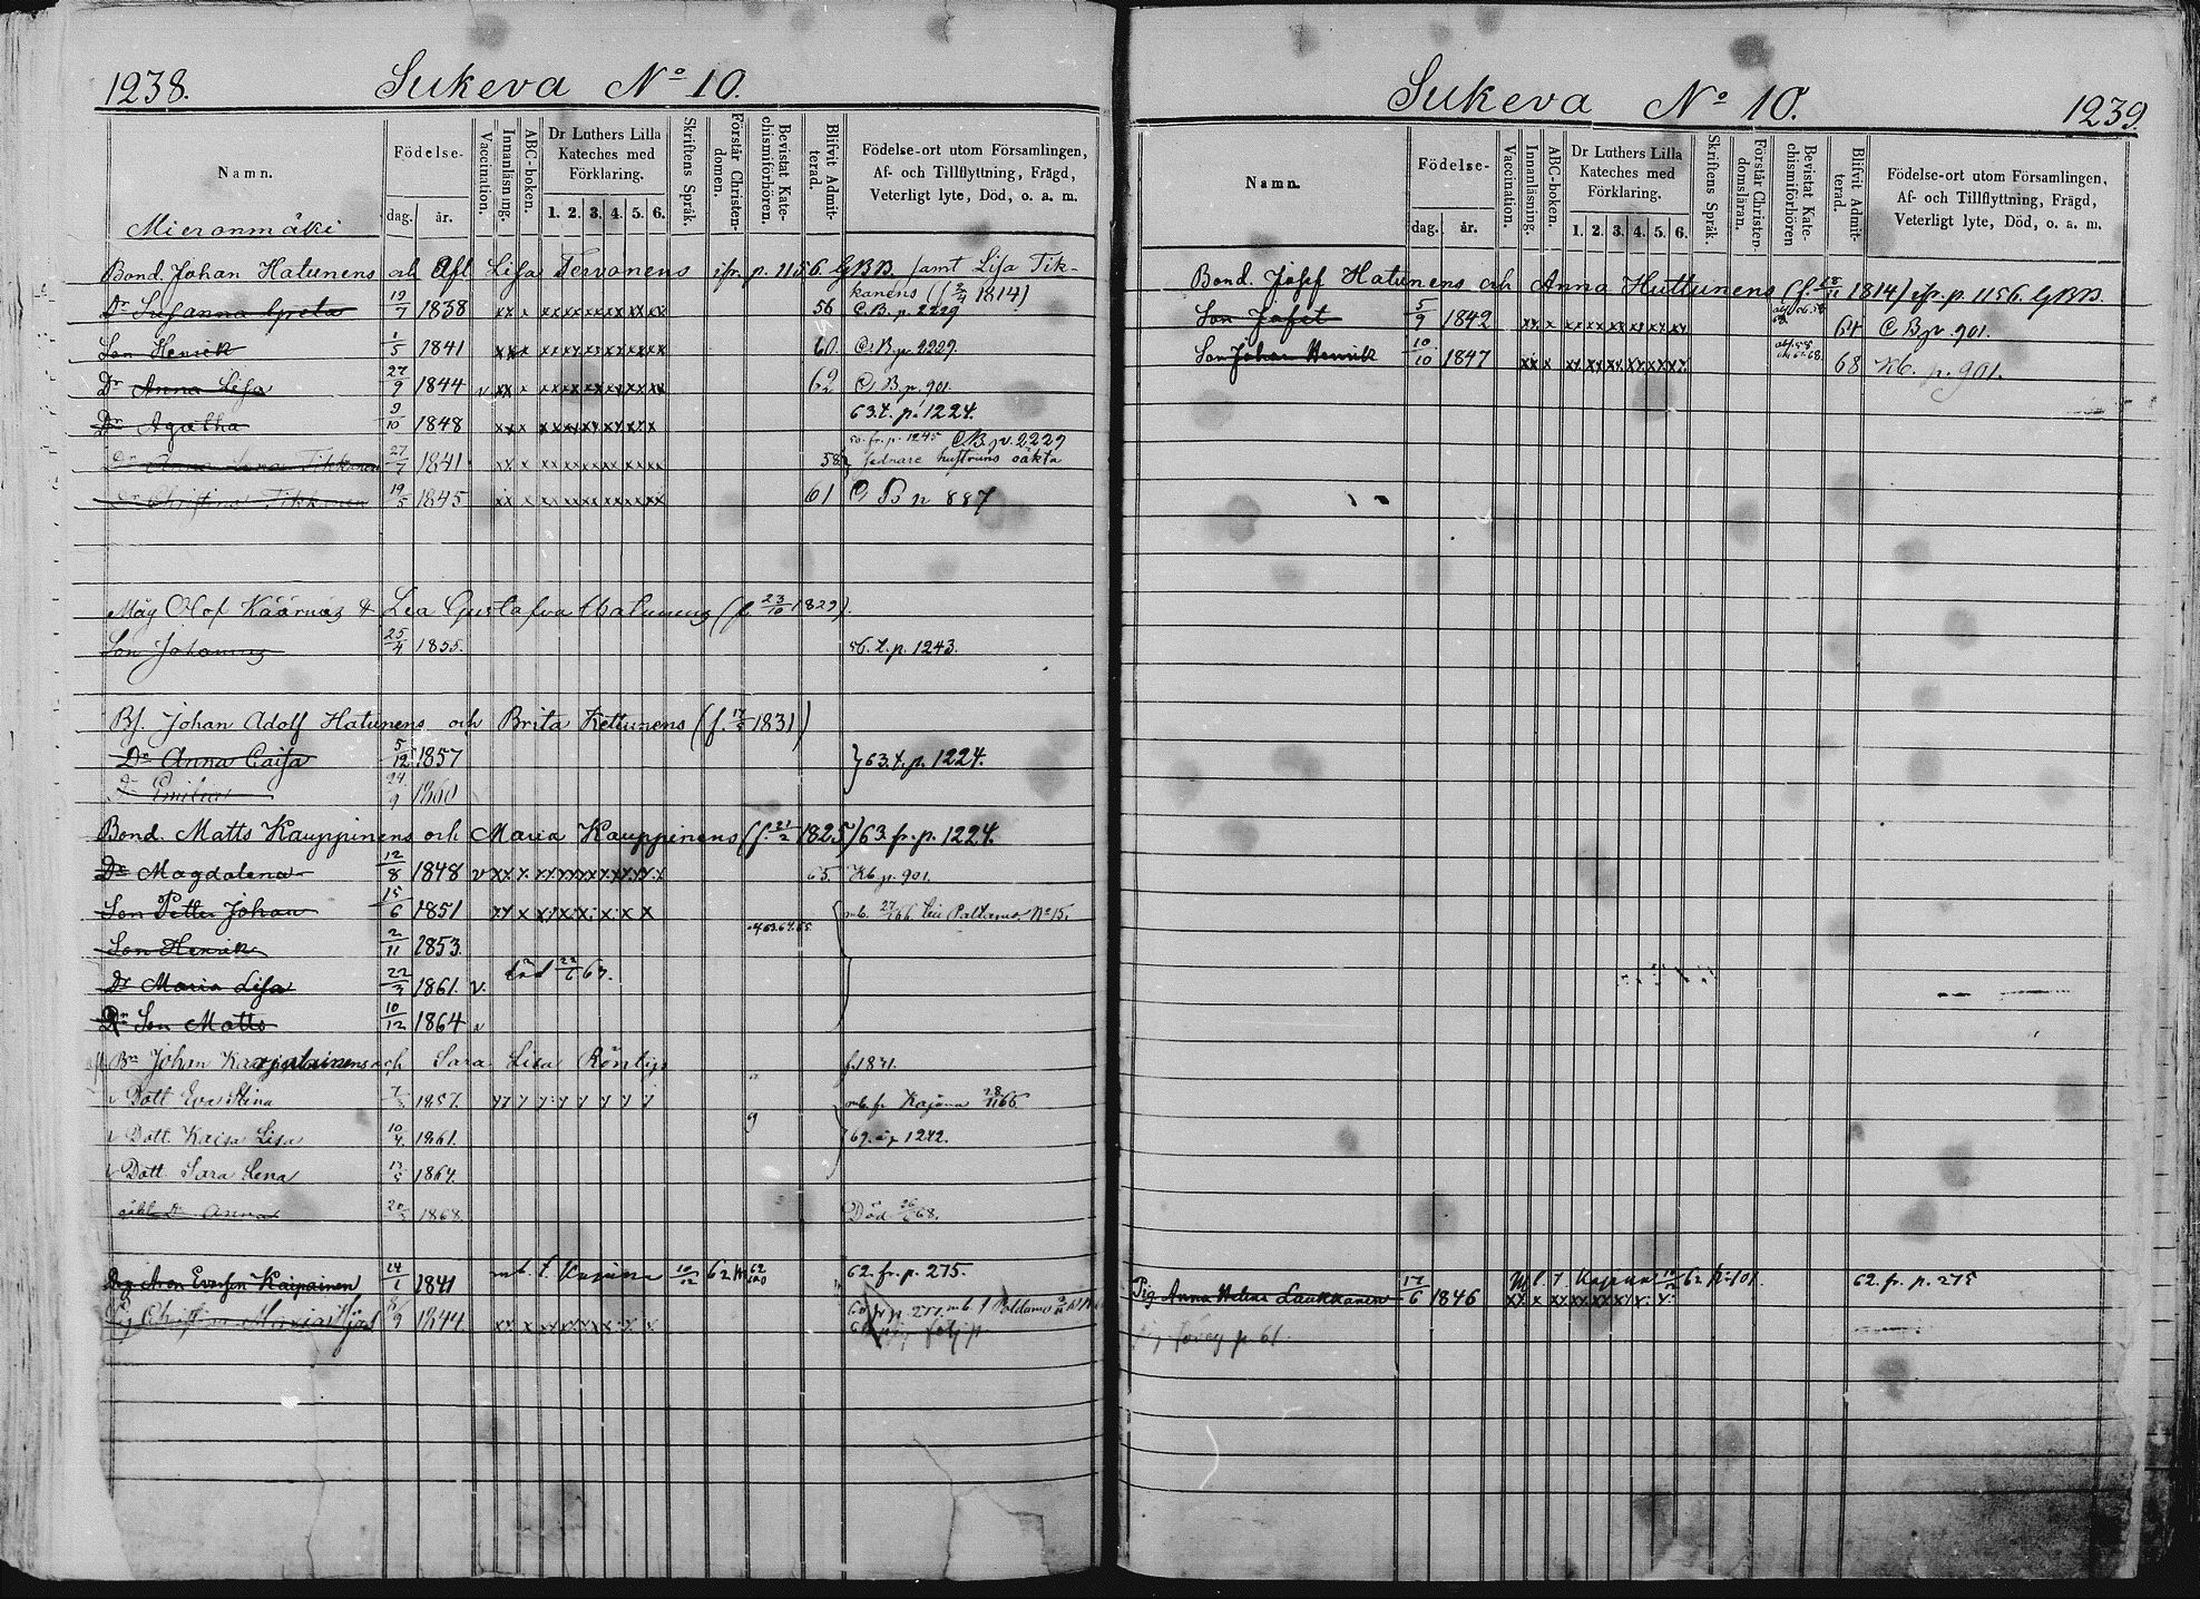 1238. Sukeva No 10.
Namn.
Födelse-
dag. år.
Vaccination.
Innanläsning.
ABC-boken.
Dr Luthers Lilla Kateches med Förklaring.
1. 2. 3. 4. 5. 6.
Skriftens Språk.
Förstår Christen-domen.
Bevistat Kate-chismiförhören.
Blifvit Admit-terad.
Födelse-ort utom Församlingen,
Af- och Tillflyttning, Frägd,
Veterligt lyte, Död, o. a. m.
Mieronmäki
Bond. Johan Hatunens och Afl Lisa Tervonens ifr. p. 1156. GBB. samt Lisa Tik-
kanens (f 2/4 1814)
Dr Susanna Greta 19/7 1838 xx x xx xx xx xx xx xx 56 C.B.p. 2229
Son Henrik 1/5 1841 xx x xx xx xx xx xx xx 60. C.B.p. 2229.
Dr Anna Lisa 27/9 1844 v xx x xx xx xx xx xx xx 62 C.B.p. 901.
Dr Agatha 9/10 1848 xx x 63. t. p. 1224.
50. fr. p. 1245 C.B.p. 2229
Dr Anna Lena Tikkanen 27/7 1841 xx x xx xx xx xx xx xx 58 sednare hustruns oäkta
Dr Christina Tikkanen 19/5 1845 xx x xx xx xx xx xx xx 61 C B p 887
Måg Olof Käärnäs & Lea Gustafva Hatunens (f 23/10 1829).
Son Johannes 25/4 1855. 56. t. p. 1243.
Bf. Johan Adolf Hatunens och Brita Kettunens (f. 1831)
Dr Anna Caisa 5/12 1857 } 63. t. p. 1224.
Dr Emilia 24/9 1860
Bond. Matts Kauppinens och Maria Kauppinens (f. 21/2 1825) 63. fr. p. 1224.
Dr Magdalena 12/8 1848 v xx x xx xx xx xx xx xx 65. Kb p. 901.
Son Petter Johan 15/6 1851 xx x xx x x x x x mb. 27/ 66 till Paltamo No 15.
63.64.65.
Son Henrik 2/11 1853.
död 22/6 63.
Dr Maria Lisa 22/3 1861. v.
Son Matts 10/12 1864 v
Bn Johan Karjalainens och Sara Lisa f. 1831.
Dott Eva Stina 1857. mb. fr Kajana 28/11 66.
Dott. Kaisa Lisa 10/4 1861. 69. p 1242.
Dott. Sara Lena 1864.
oäkt Dr Anna 1868. Död 68.
Drg Aron Kaipainen 14/1 1841 mb. f. Kajana 10/12 62 62. fr. p. 275.
Pig Christina Maria 1844 xx x
1239. Sukeva No 10.
Namn.
Födelse-
dag. år.
Vaccination.
Innanläsning.
ABC-boken.
Dr Luthers Lilla Kateches med Förklaring.
1. 2. 3. 4. 5. 6.
Skriftens Språk.
Förstår Christen-domsläran.
Bevistat Kate-chismiförhören
Blifvit Admit-terad.
Födelse-ort utom Församlingen,
Af- och Tillflyttning, Frägd,
Veterligt lyte, Död, o. a. m.
Bond. Josef Hatunens och Anna Huttunens (f. 18/11 1814) ifr. p. 1156. GBB.
Son Josef 5/9 1842 xx x xx xx xx xx xx xx 64 C B p. 901.
Son Johan Henrik 10/10 1847 xx x xx xx xx xx xx xx 68 Kb. p. 901.
Pig Anna Helena Laukkanen 17/6 1846 xx x xx xx xx xx x. x. 62. fr. p. 275